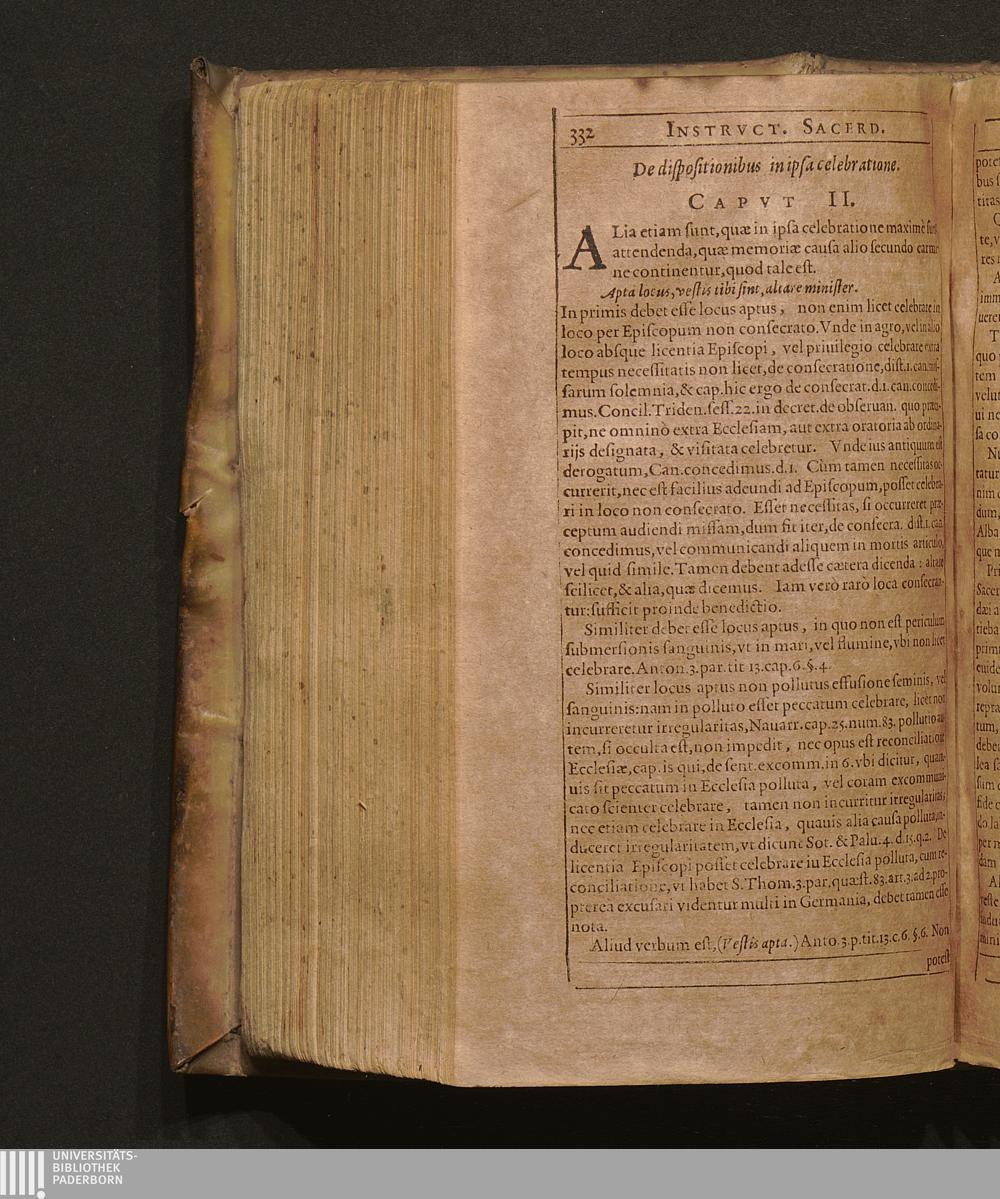 332 INSTRVCT. SACERD.
De dispositionibus in ipsa celebratione.
CAPVT II.
ALia etiam sunt, quæ in ipsa celebratione maximè sunt
attendenda, quæ memoriæ causa alio secundo carmi-
ne continentur, quod tale est.
Apta locus, vestis tibi sint, altare minister.
In primis debet esse locus aptus, non enim licet celebrare in
loco per Episcopum non consecrato. Vnde in agro, vel in alio
loco absque licentia Episcopi, vel priuilegio celebrare extra
tempus necessitatis non licet, de consecratione, dist. 1. can. mis-
sarum solemnia, & cap. hic ergo de consecrat. d. 1. can. concedi-
mus. Concil. Triden. sess. 22. in decret. de obseruan. quo præci-
pit, ne omninò extra Ecclesiam, aut extra oratoria ab ordina-
rijs designata, & visitata celebretur. Vnde ius antiquum est
derogatum, Can. concedimus. d. 1. Cùm tamen necessitas oc-
currerit, nec est facilius adeundi ad Episcopum, posset celebra-
ri in loco non consecrato. Esset necessitas, si occurreret præ-
ceptum audiendi missam, dum fit iter, de consecra. dist. 1. can.
concedimus, vel communicandi aliquem in mortis articulo,
vel quid simile. Tamen debent adesse cætera dicenda: altare
scilicet, & alia, quæ dicemus. Iam verò rarò loca consecran-
tur: sufficit proinde benedictio.
Similiter debet esse locus aptus, in quo non est periculum
submersionis sanguinis, vt in mari, vel flumine, vbi non licet
celebrare. Anton. 3. par. tit. 13. cap. 6. §. 4.
Similiter locus aptus non pollutus effusione seminis, vel
sanguinis: nam in polluto esset peccatum celebrare, licèt non
incurreretur irregularitas, Nauarr. cap. 25. num. 83. pollutio au
tem, si occulta est, non impedit, nec opus est reconciliatione
Ecclesiæ, cap. is qui, de sent. excomm. in 6. vbi dicitur, quam-
uis sit peccatum in Ecclesia polluta, vel coram excommuni-
cato scienter celebrare, tamen non incurritur irregularitas;
nec etiam celebrare in Ecclesia, quauis alia causa polluta, in-
duceret irregularitatem, vt dicunt Sot. & Palu. 4. d. 15. q. 2. De
licentia Episcopi posset celebrare iu Ecclesia polluta, cum re-
conciliatione, vt habet S. Thom. 3. par. quæst. 83. art. 3. ad 2. pro-
pterea excusari videntur multi in Germania, debet tamen esse
nota.
Aliud verbum est, (Vestis apta.) Anto. 3. p. tit. 13. c. 6. §. 6. Non
potest
UNIVERSITÄTS-
BIBLIOTHEK
PADERBORN